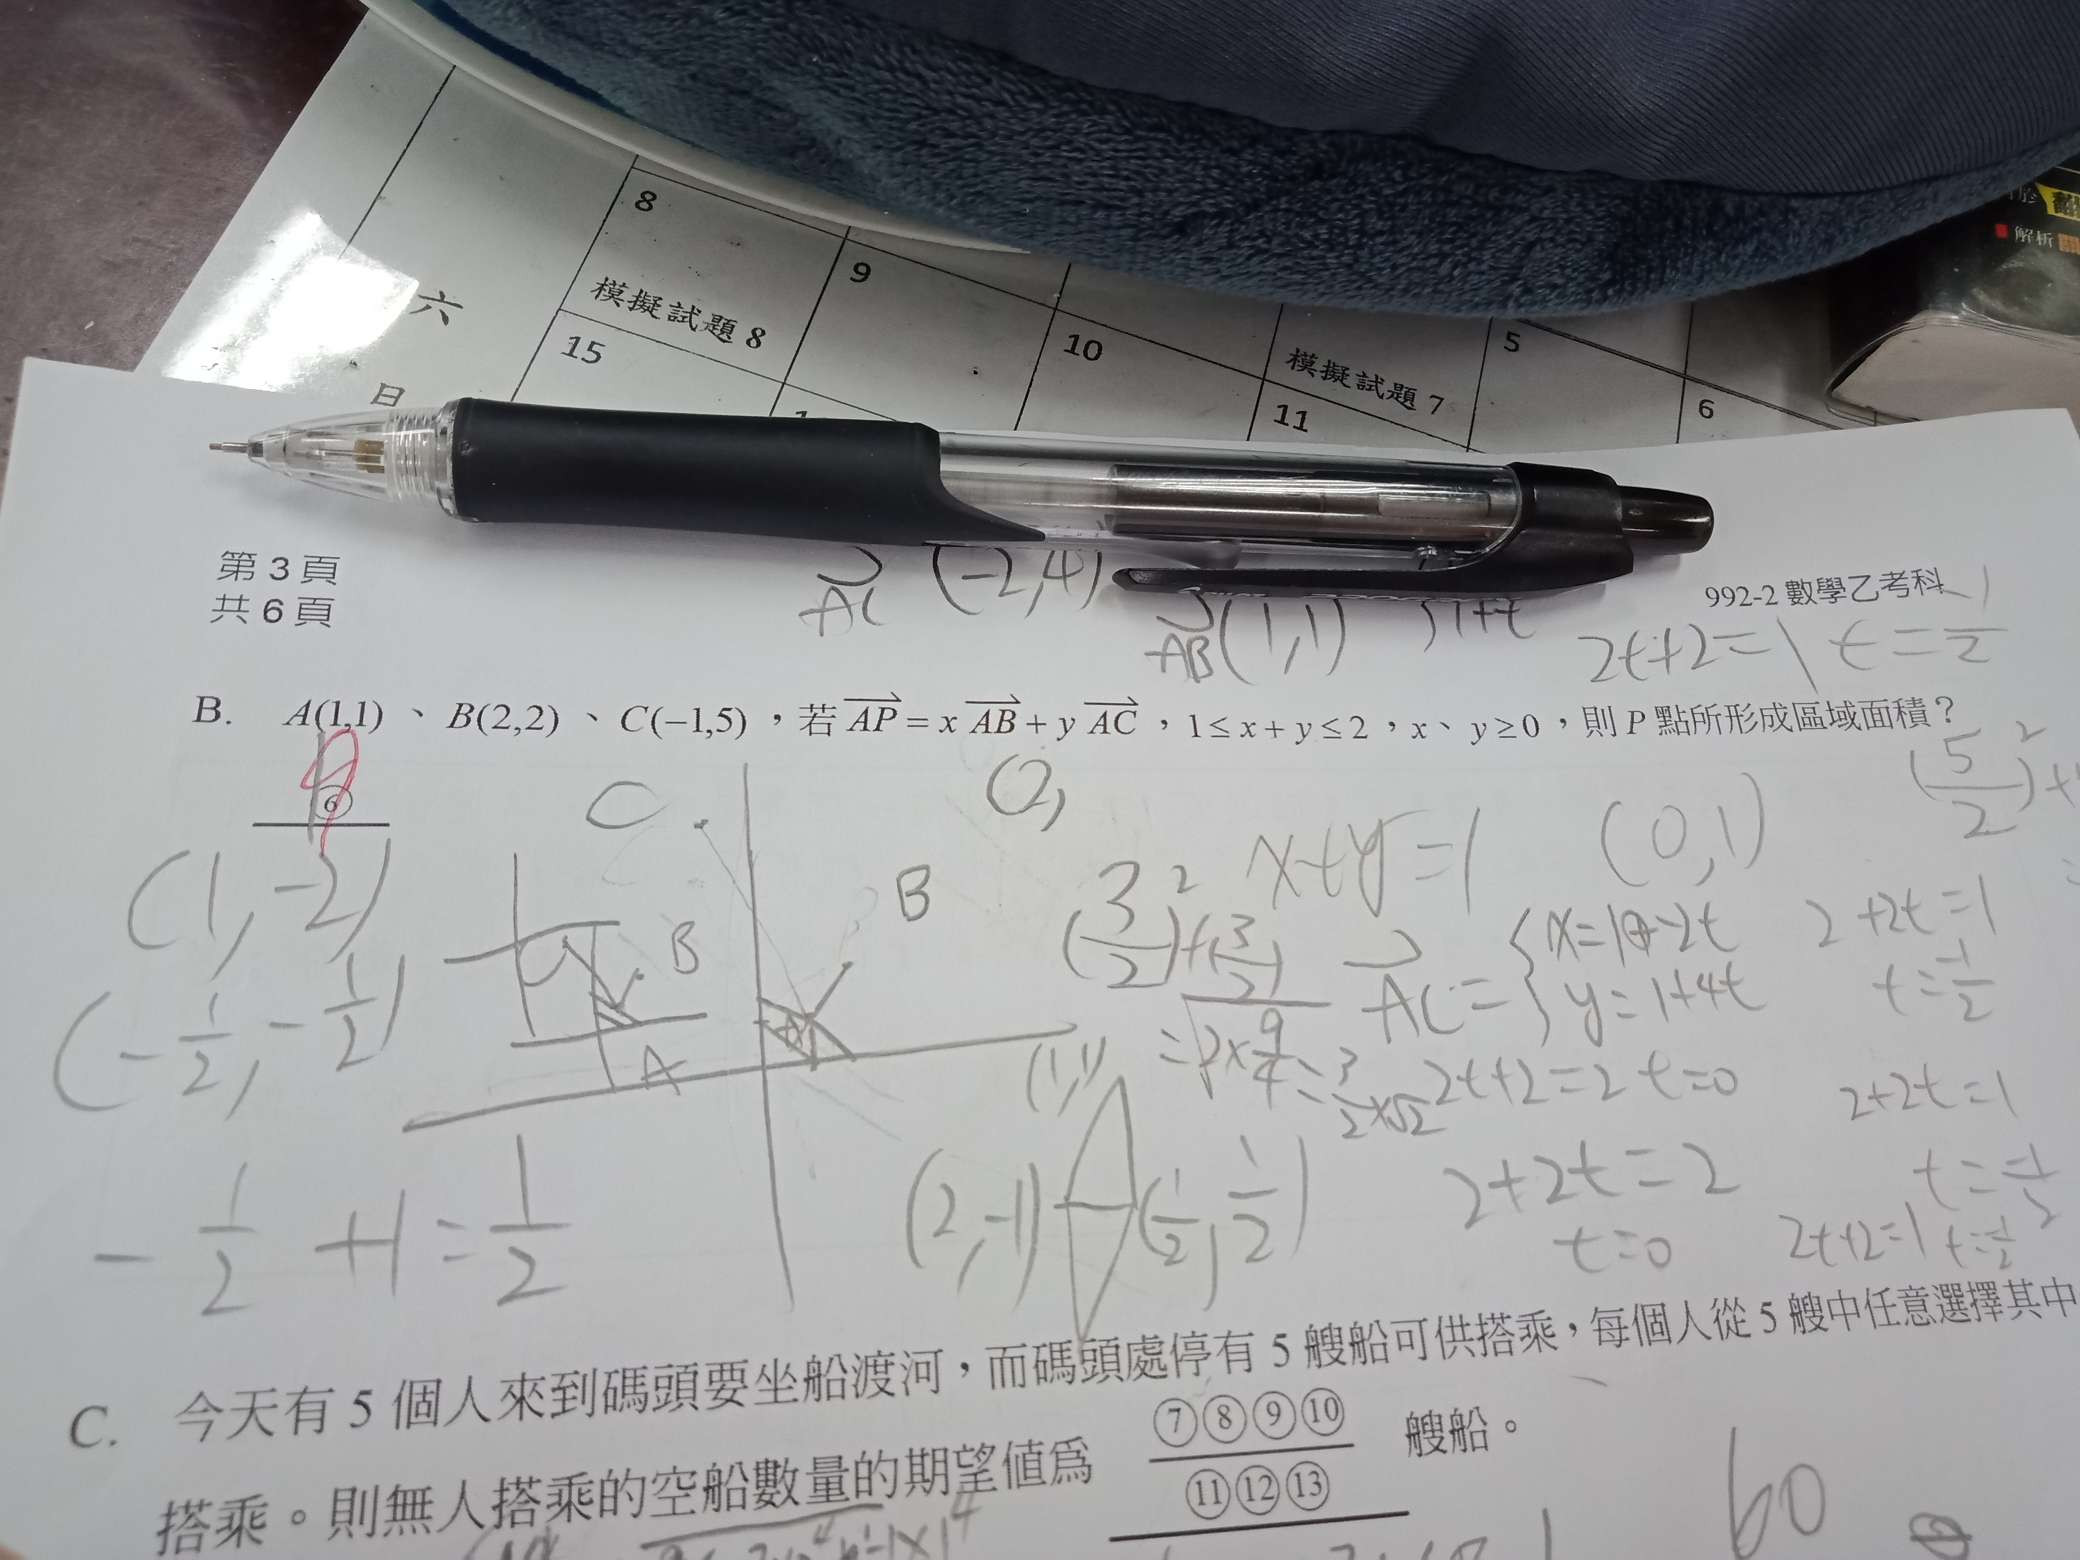 8
模擬試題 8
9
10
模擬試題 7
5
6
六
15
11
日
解析
第 3 頁
共 6 頁
AC (-2,4)
AB (1,1)
1+t
992-2 數學乙考科
2t+2=1 t=-1/2
B. A(1,1)、B(2,2)、C(−1,5)，若 AP = x AB + y AC，1≤x+y≤2，x、y≥0，則 P 點所形成區域面積？
9
⑥
C
(0,
B
x+y=1
(0,1)
(5/2)²+
(1,-2)
B
A
(3/2)²+(3/2)
AC={x=1-2t
y=1+4t
2+2t=1
t=-1/2
(-1/2,-1/2)
(1,1)
=2×9/4=3/2×√2
2t+2=2 t=0
2+2t=1
t=-1/2
-1/2+1=1/2
(2,-1)
(1/2,1/2)
2+2t=2
t=0
2t+2=1 t=-1/2
C. 今天有 5 個人來到碼頭要坐船渡河，而碼頭處停有 5 艘船可供搭乘，每個人從 5 艘中任意選擇其中
搭乘。則無人搭乘的空船數量的期望值為 ⑦⑧⑨⑩/⑪⑫⑬ 艘船。
60